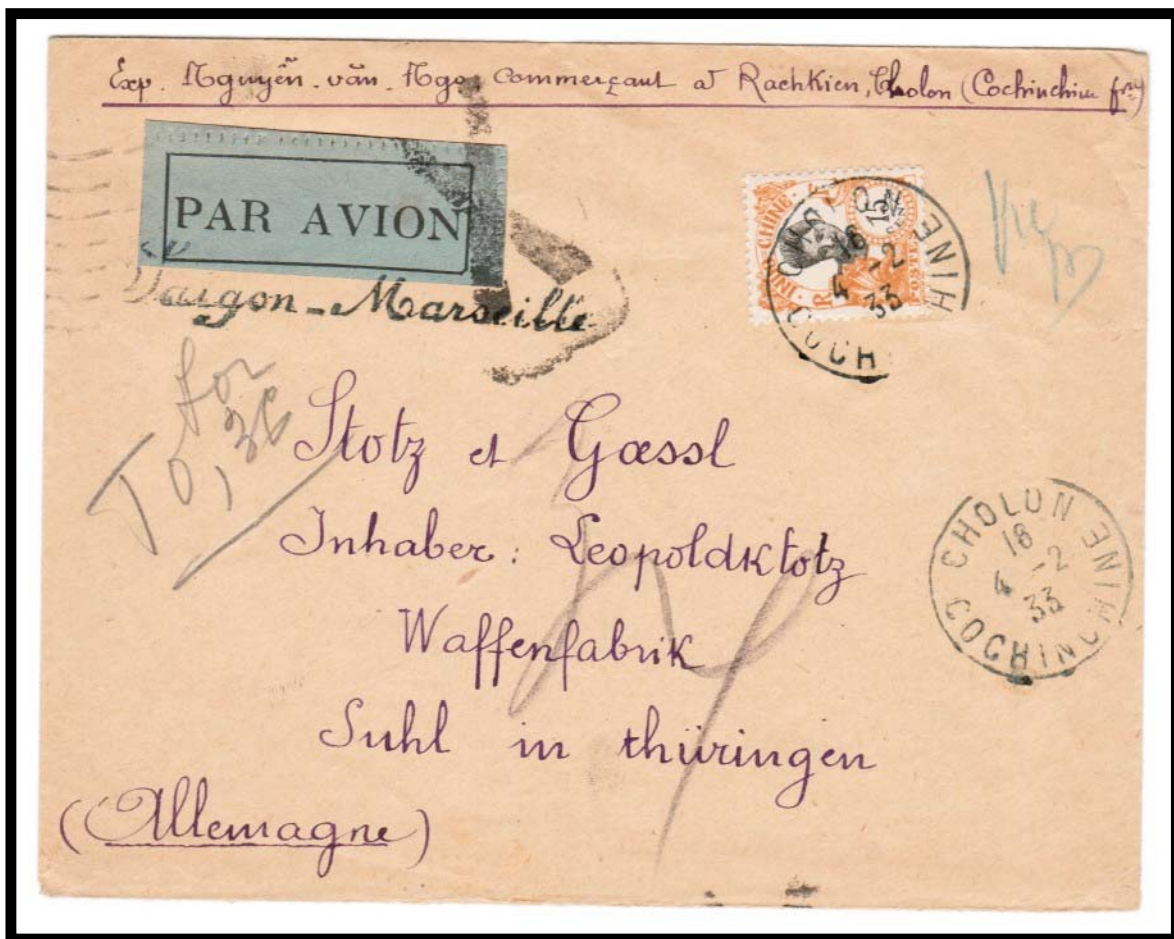 Exp. Nguyễn-văn-Ngo Commerçant à Rachkien, Cholon (Cochinchine frse)
PAR AVION
Saigon-Marseille
INDO-CHINE
POSTES
CHOLON
16
4 -2
33
COCHINCHINE
T 0,36
Stotz et Gœssl
Inhaber: Leopoldktotz
Waffenfabrik
Suhl in thüringen
(Allemagne)
CHOLON
16
4 -2
33
COCHINCHINE